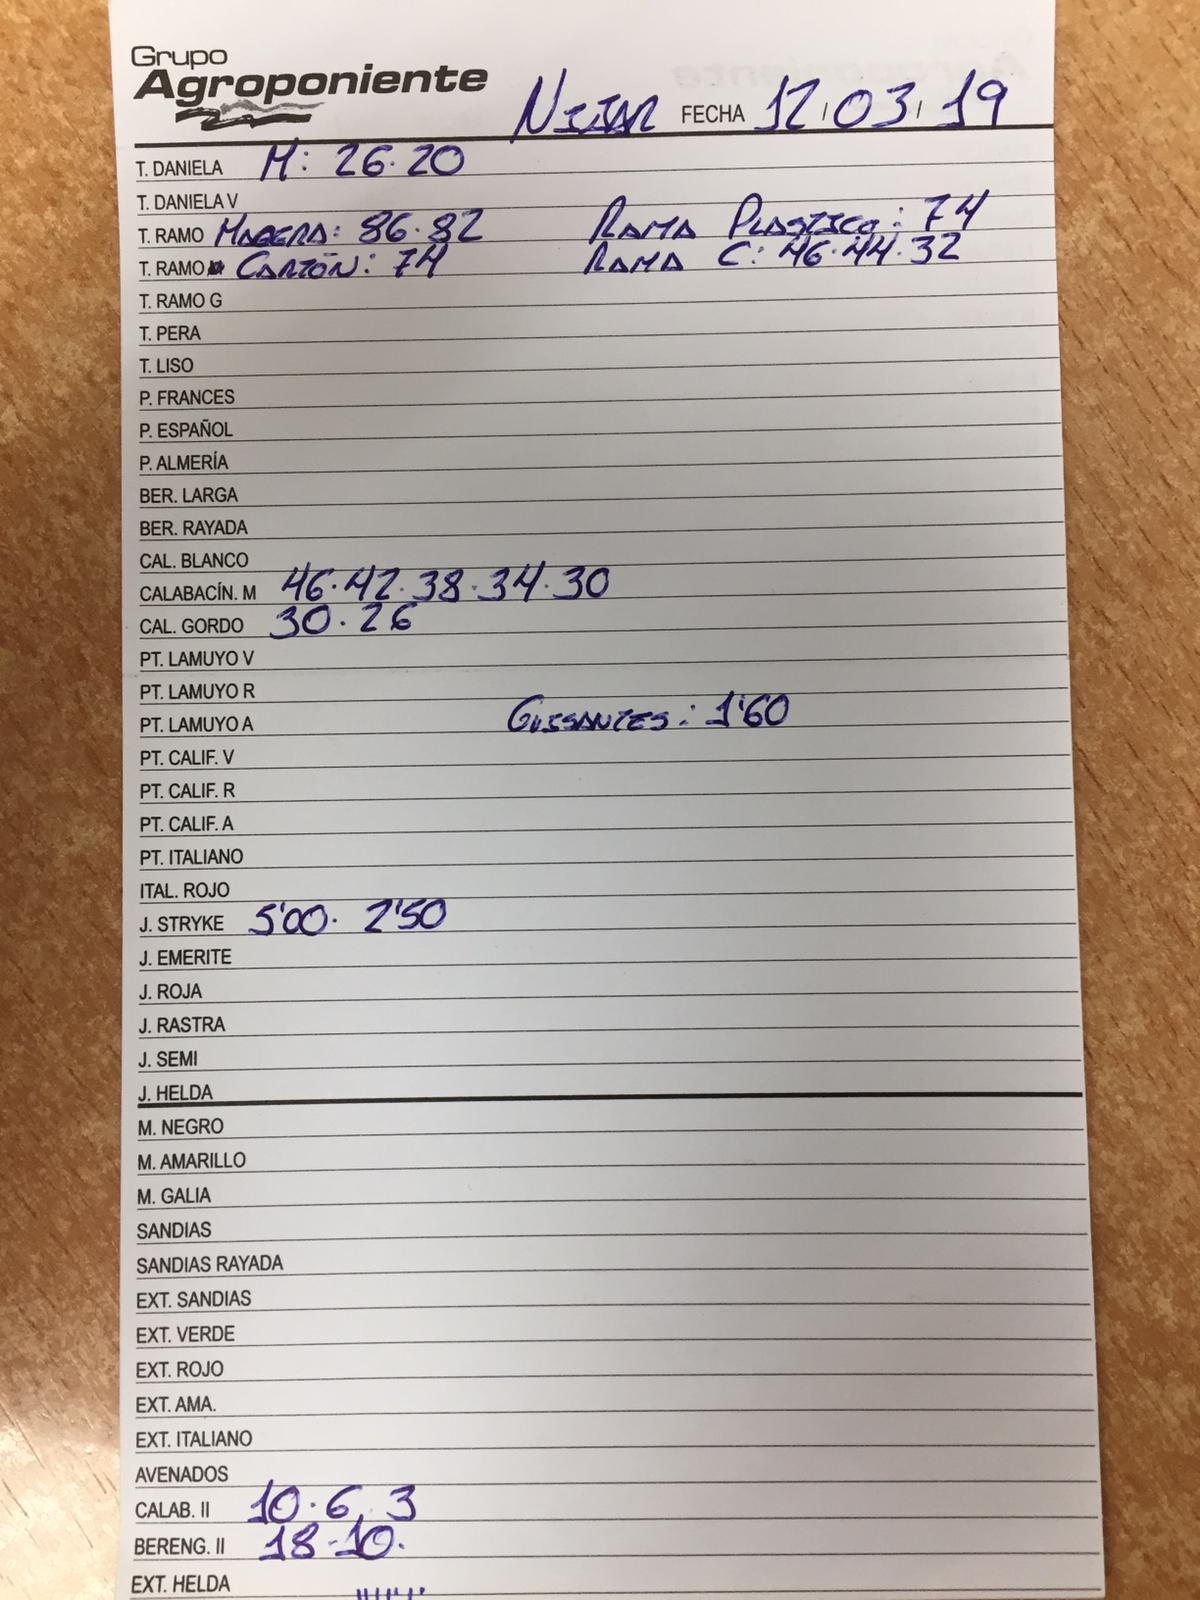 Grupo
Agroponiente
NIJAR FECHA 12/03/19
T. DANIELA M: 26.20
T. DANIELA V
T. RAMO MADERA: 86.82 RAMA PLASTICO: 74
T. RAMO CARTÓN: 74 RAMA C: 46.44.32
T. RAMO G
T. PERA
T. LISO
P. FRANCES
P. ESPAÑOL
P. ALMERÍA
BER. LARGA
BER. RAYADA
CAL. BLANCO
CALABACÍN. M 46.42.38.34.30
CAL. GORDO 30.26
PT. LAMUYO V
PT. LAMUYO R
PT. LAMUYO A GUISANTES: 1'60
PT. CALIF. V
PT. CALIF. R
PT. CALIF. A
PT. ITALIANO
ITAL. ROJO
J. STRYKE 5'00. 2'50
J. EMERITE
J. ROJA
J. RASTRA
J. SEMI
J. HELDA
M. NEGRO
M. AMARILLO
M. GALIA
SANDIAS
SANDIAS RAYADA
EXT. SANDIAS
EXT. VERDE
EXT. ROJO
EXT. AMA.
EXT. ITALIANO
AVENADOS
CALAB. II 10.6,3
BERENG. II 18-10.
EXT. HELDA